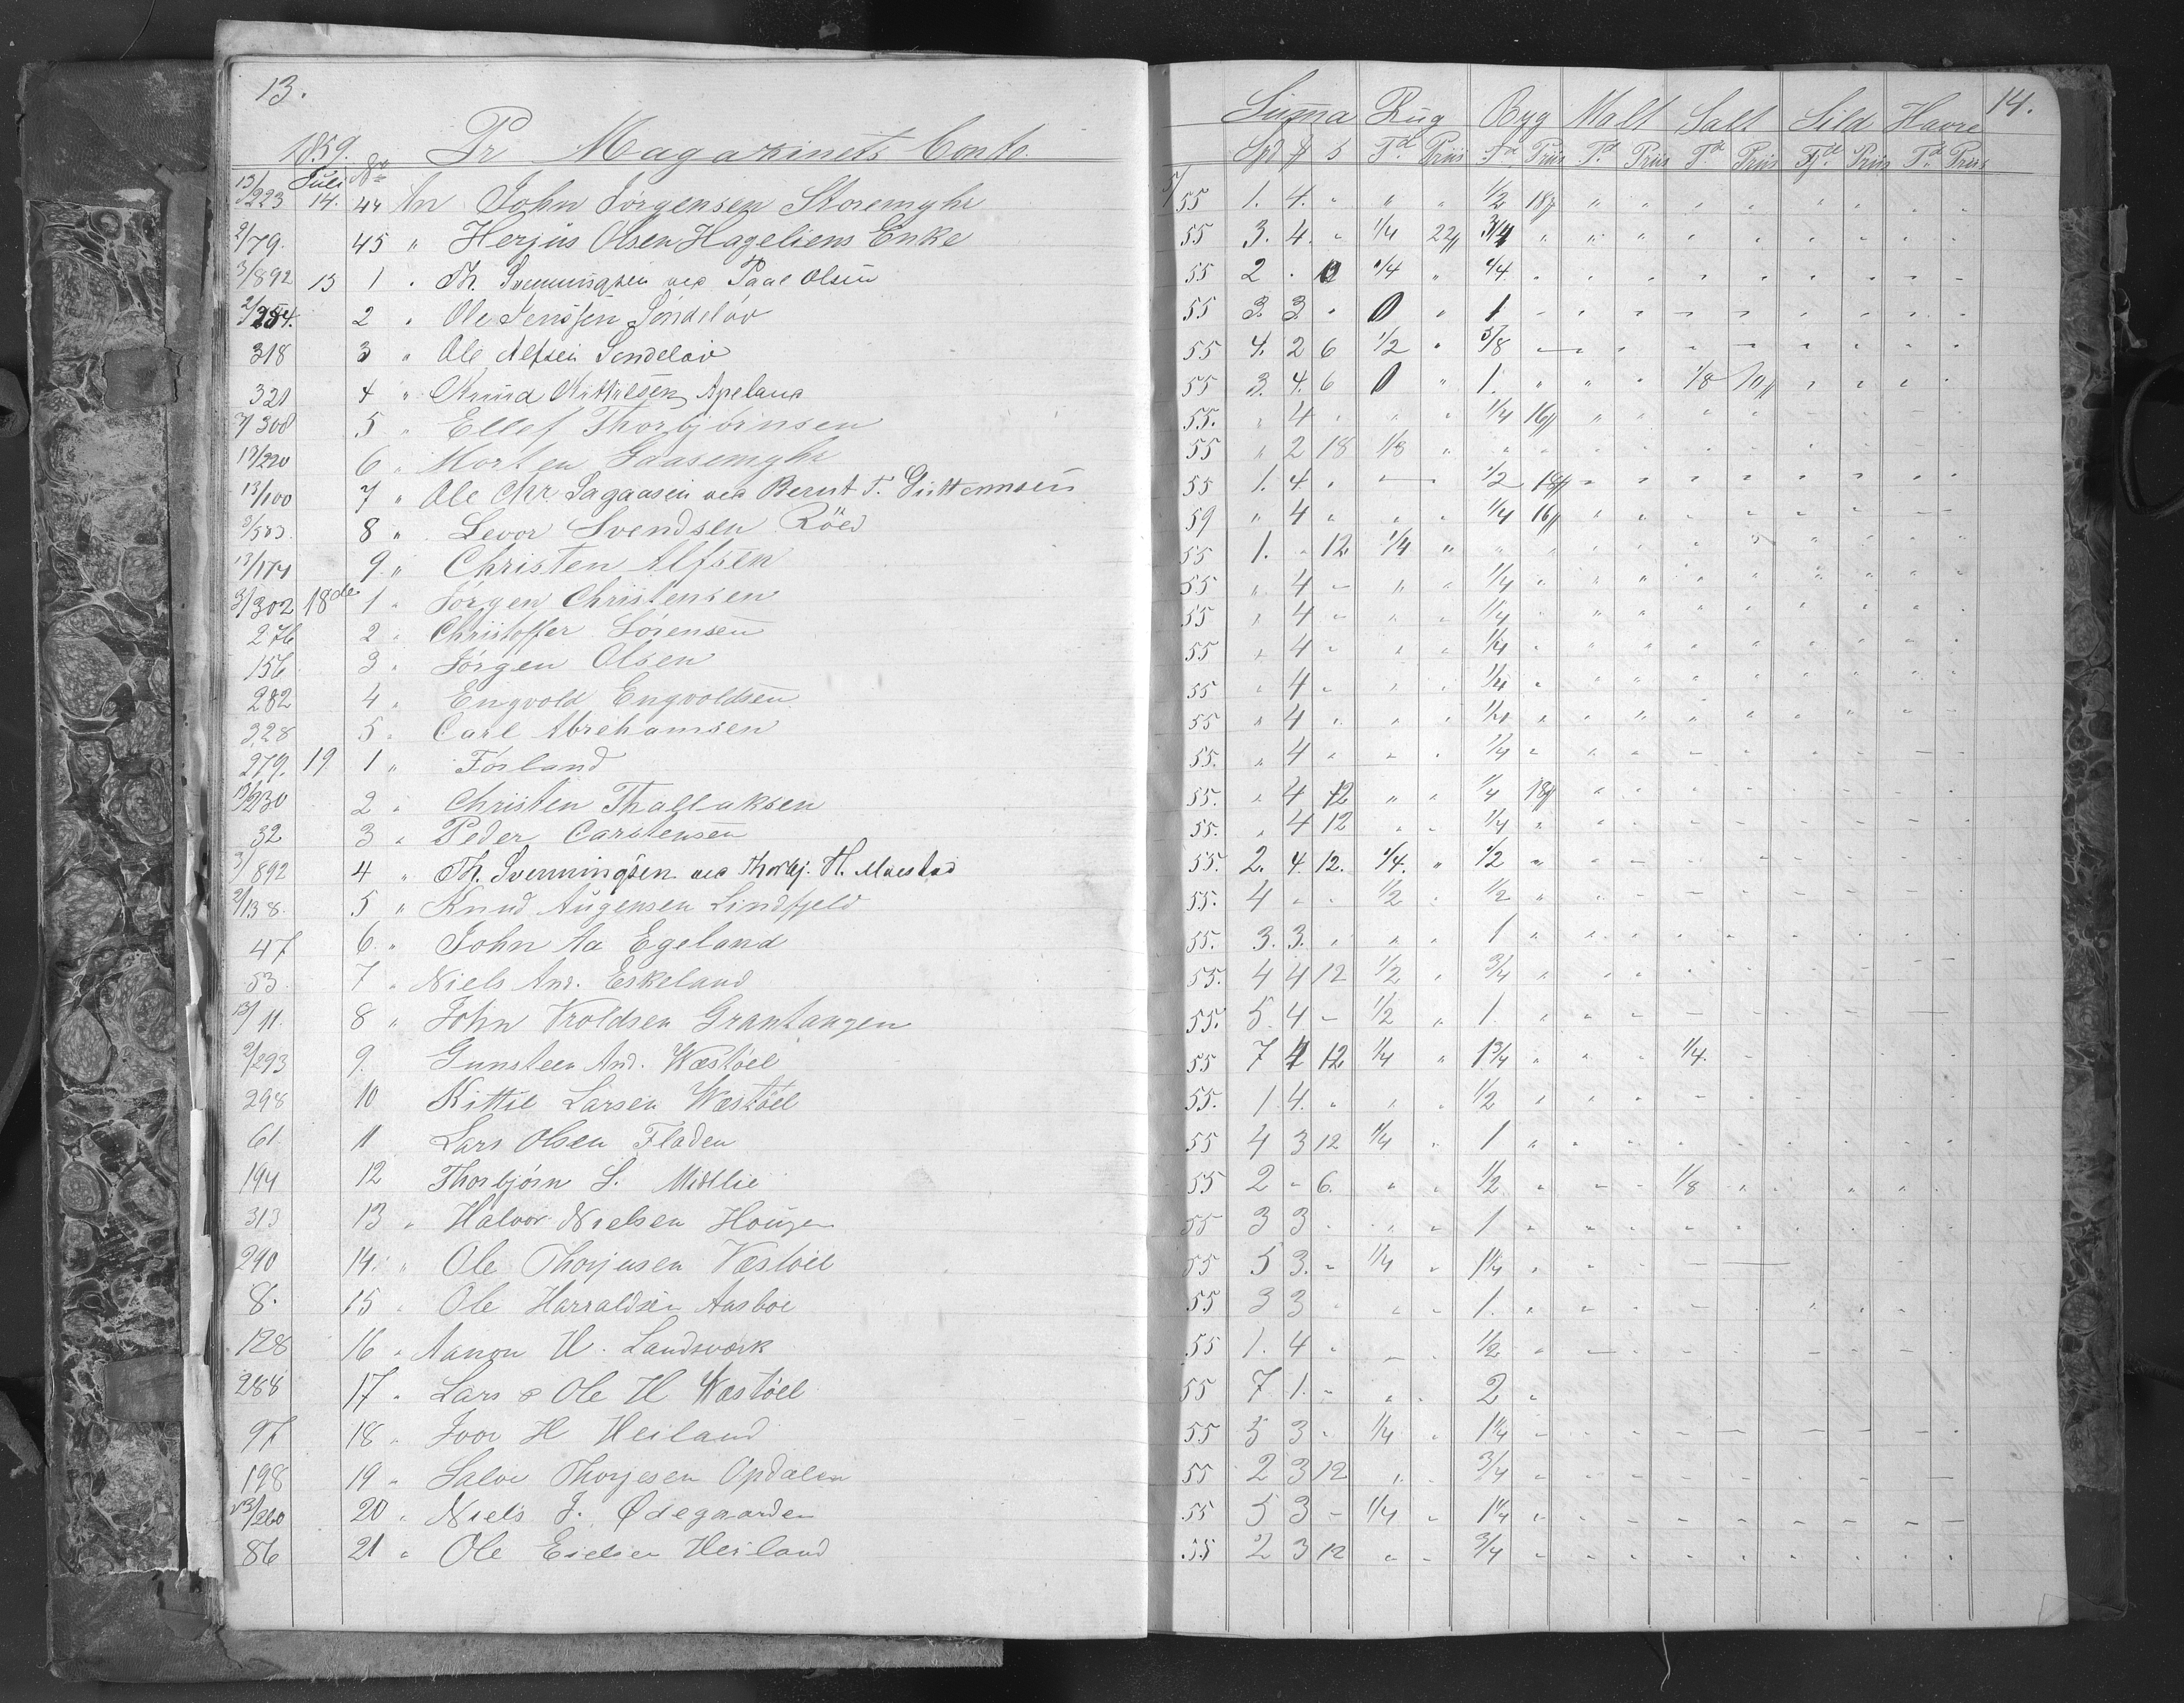 13.
1859. Pr Magazinets Conto.
Juli No
13/223 14. 44 An John Jörgensen Storemyhr
2/79. 45 " Herjus Olsen Hageliens Enke
3/892 15 1 " Th. Svenningsen ved Paal Olsen
2/254. 2 " Ole Jenssen Söndeløv
318 3 " Ole Alfsen Sondeløv
321 4 " Knud Kittilsen Apeland
3/308 5 " Ellef Thorbjörnsen
13/220 6 " Morten Gaasemyhr
13/100 7 " Ole Chr. Sagaasen ved Bernt T. Guttormsen
3/503. 8 " Levor Svendsen Röed
13/174 9 " Christen Alfsen
3/302 18de 1 " Jörgen Christensen
276 2 " Christoffer Sörensen
156 3 " Jörgen Olsen
282 4 " Engvold Engvoldsen
328 5 " Carl Abrehamsen
279. 19 1 " Forland
13/230 2 " Christen Thallaksen
32 3 " Peder Carstensen
3/892 4 " Th. Svenningsen ved Thorbj. H. Maestad
2/138. 5 " Knud Augensen Lindfjeld
47 6. " John Aa Egeland
53 7 " Niels And. Eskeland
13/11. 8 " John Troldsen Grantangen
2/293 9. Gunsteen And. Wæstöel
298 10 Kittil Larsen Wæstöel
61. 11 Lars Olsen Fladen
194 12 Thorbjörn S. Midtlie
313 13 " Halvor Nielsen Hougen
290 14. " Ole Thorjusen Væstöel
8. 15 " Ole Harraldsen Aasboe
128 16 " Aanon H. Landsverk
288 17 " Lars & Ole H Wæstöel
97 18 " Ivor H Heiland
198 19 " Salve Thorjesen Opdalen
13/260 20 " Niels J. Ødegaarden
86 21 " Ole Eielsen Heiland
14.
Summa Rug Byg Malt Salt Sild Havre
Spd # s Td Priis Td Priis Td Priis Td Priis Td Priis Td Priis
5/55 1. 4. " " " 1/2 18# " " " " " " " "
55 3. 4. " 1/4 22# 3/4 " " " " " " " " "
55 2 . 0 1/4 " 1/4 " " " " " " " " "
55 3. 3 " 0 " 1 " " " " " " " " "
55 4. 2 6 1/2 " 5/8 " " " " " " " "
55 3. 4. 6 0 " 1. " " " 1/8 10# " " " "
55. " 4 " " " 1/4 16# " " " "
55 " 2 18 1/3 " " " " " " " " " "
55 1. 4 " " 1/2 18# " " " " " " " "
59 " 4 " " " 1/4 16# " " " " " " "
55 1. " 12 1/4 " " " " " " " " " " "
55 " 4 " " " 1/4 " " " " " " " " "
55 " 4 " " " 1/4 " " " " " " " " "
55 " 4 " " " 1/4 " " " " " " " " "
55 " 4 " " " 1/4 " " " " " " " " "
55 " 4 " " " 1/4 " " " " " " " " "
55. " 4 " " " 1/4 " " " " " " " " "
55. " 4 12 " " 1/4 18# " " " " " " " "
55. " 4 12 " " 1/4 " " " " " " " " "
55. 2. 4. 12. 1/4. " 1/2 " " " " " " " " "
55. 4 " " 1/2 " 1/2 " " " " " " " " "
55. 3. 3. " " " 1 " " " " " " " " "
55. 4 4 12 1/2 " 3/4 " " " " " " " "
55. 5. 4 " 1/2 " 1. " " " " " " " "
55 7 4 12 1/4 " 1 3/4 " " " 1/4. "
55. 1. 4. " " " 1/2 " " " " " "
55 4 3 12 1/4 " 1 " " " " " " " " "
55 2 " 6. " " 1/2 " " " 1/8 " " " " "
55 3 3 " " " 1 " " " " " " " "
55 5 3. " 1/4 " 1 1/4 " " " " "
55 3 3 " " " 1. " " " " " " " "
55 1. 4 " " " 1/2 " " " " " " " "
55 7 1. " " " 2 "
55 5 3 " 1/4 " 1 1/4 " " " " " " " "
55 2 3 12 " " 3/4 " " " " " " "
55 5 3 " 1/4 " 1 1/4 " " " " " " " " "
55 2 3 12 " " 3/4 " " " " " " " " "